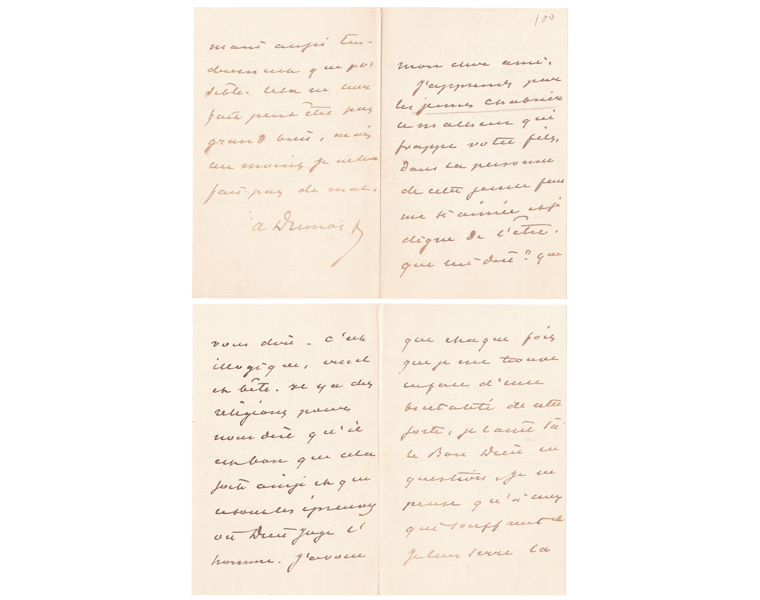 100
mon cher ami,
J'apprends par
les jeunes Chabrier
ce malheur qui
frappe votre fils,
dans la personne
de cette jeune fem
me si aimée et si
digne de l'être.
que lui dire? que
vous dire. C'est
illogique, cruel
et bête. Il y a des
religions pour
nous dire qu'il
est bon que cela
soit ainsi et que
ce sont les épreuves
où Dieu juge l'
homme. J'avoue
que chaque fois
que je me trouve
en face d'une
brutalité de cette
sorte, je laisse là
le Bon Dieu en
question, et je ne
pense qu'à ceux
qui souffrent et
je leur serre la
main aussi ten-
drement que pos
sible. Cela ne leur
fait peut être pas
grand bien, mais
au moins je ne leur
fais pas de mal.
A Dumas f